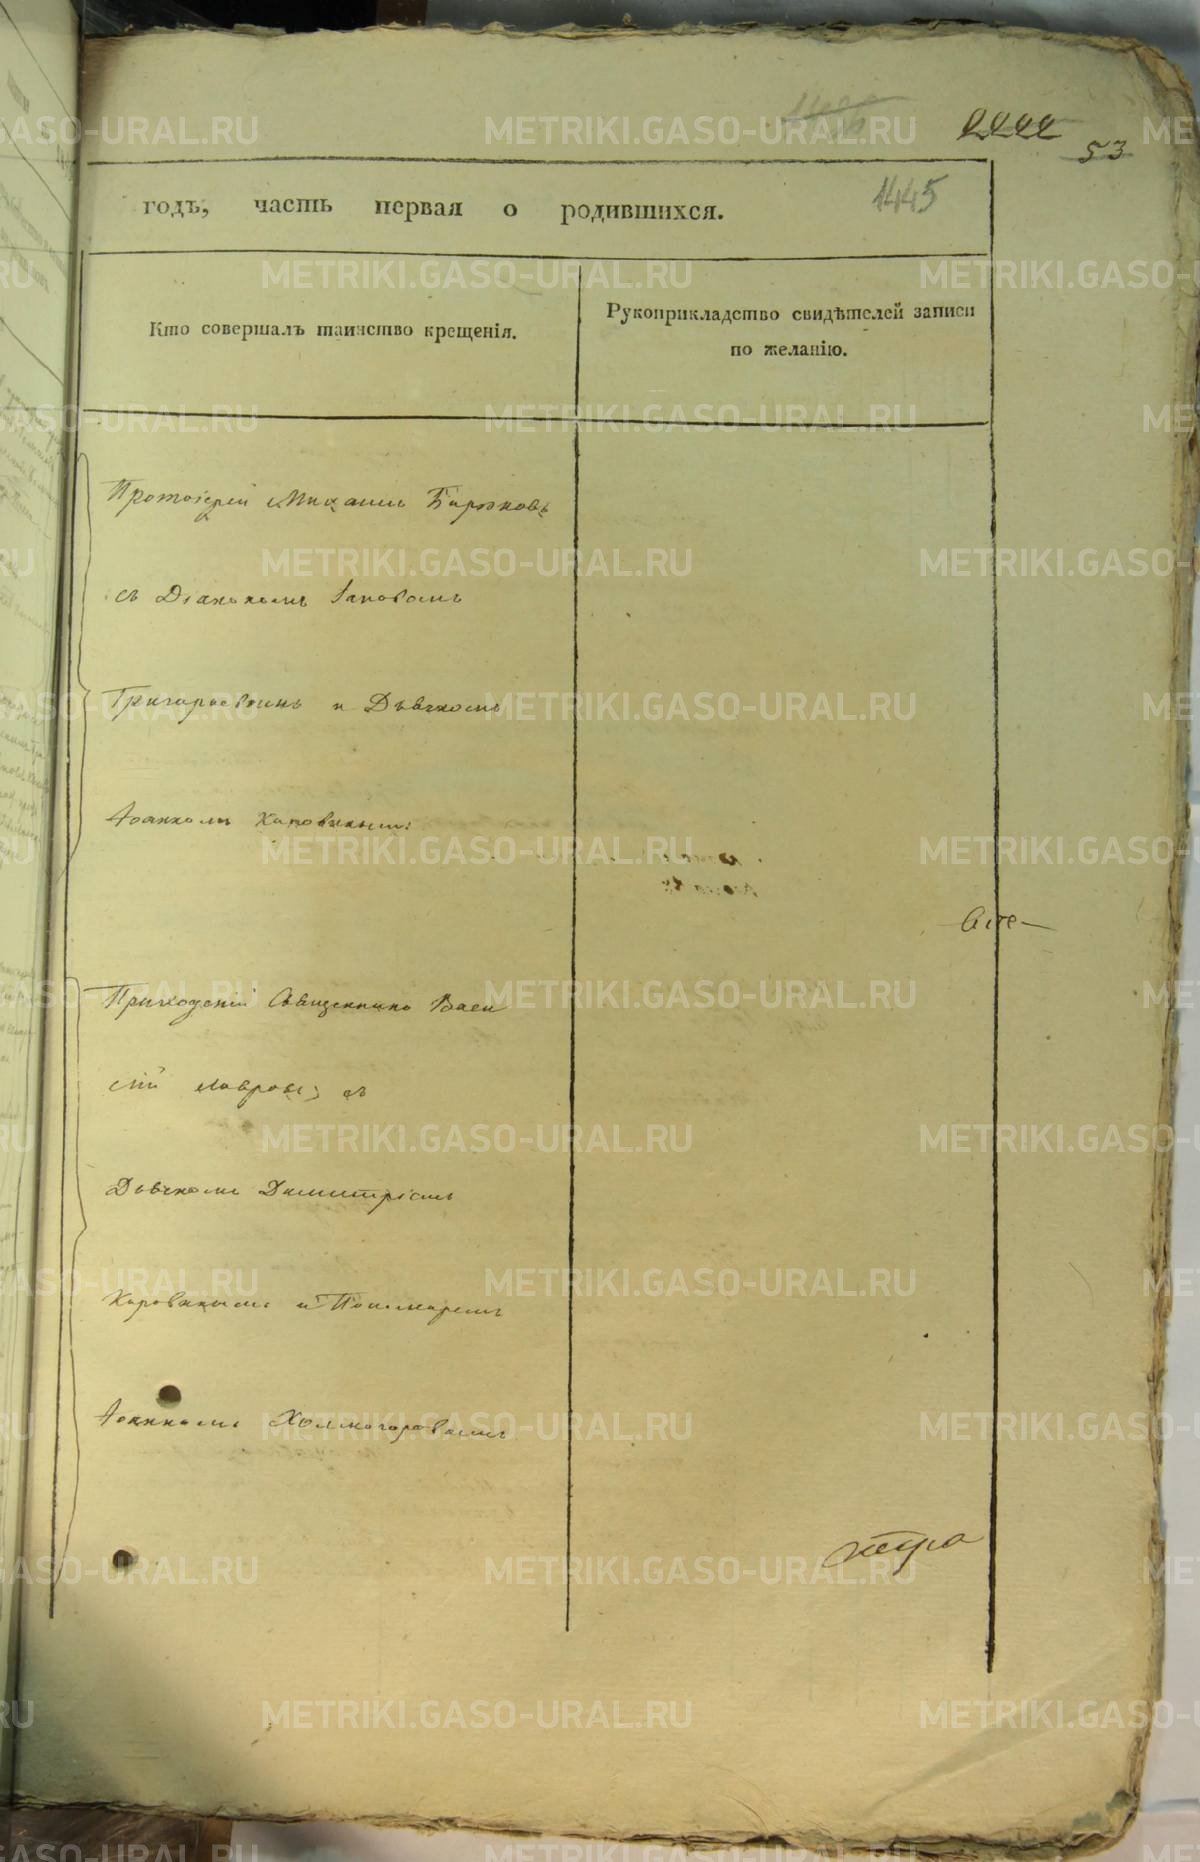 53
1445
годъ, часть первая о родившихся.
Кто совершалъ таинство крещенія.
Рукоприкладство свидѣтелей записи
по желанію.
Протоіерей Михаилъ Бирюковъ
съ Діакономъ Іаковомъ
Григорьевымъ и Дьячкомъ
Іоанномъ Каровинымъ
Приходскій Священникъ Васи
лій Лавровъ; съ
Дьячкомъ Димитріемъ
Каровинымъ и Пономаремъ
Іоанномъ Холмогоровымъ
METRIKI.GASO-URAL.RU